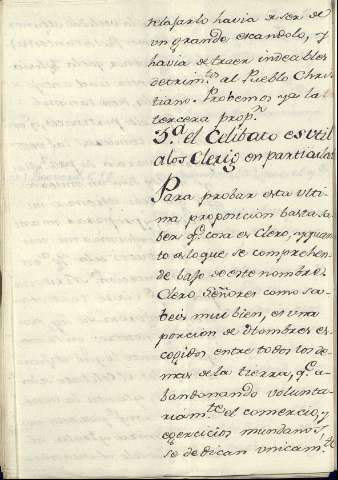 relajarlo havia de ser de
un grande escandolo, y
havia de traer indecibles
detrim.tos al Pueblo Chris
tiano. Probemos ya la
tercera prop.n
3.a el Celibato es util
a los Clerig.s en particular
Para probar esta ulti
ma proposicion basta sa
ber q.e cosa es Clero, y quan
to es lo que se comprehen
de bajo de este nombre
Clero. Señores como sa
beis mui bien, es una
porcion de Hombres es
cogidos entre todos los de
mas de la tierra, q.e a
bandonando volunta
riam.te el comercio, y
egercicios mundanos,
se dedican unicam.te